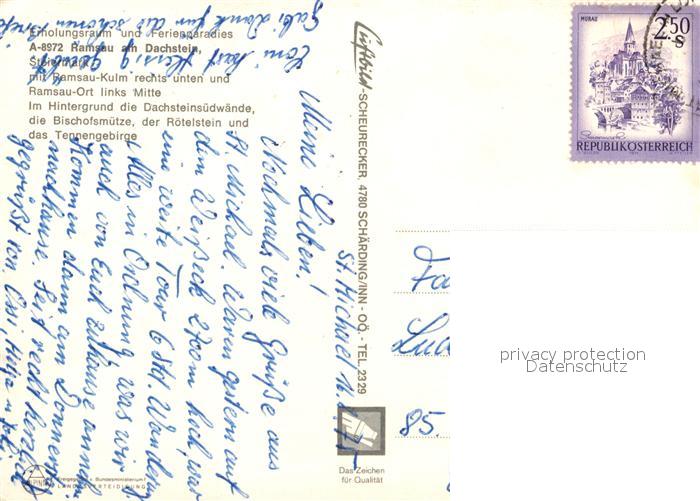 Erholungsraum und Ferienparadies
A-8972 Ramsau am Dachstein,
Steiermark
mit Ramsau-Kulm rechts unten und
Ramsau-Ort links Mitte
Im Hintergrund die Dachsteinsüdwände,
die Bischofsmütze, der Rötelstein und
das Tennengebirge
Luftbild-SCHEURECKER, 4780 SCHÄRDING/INN - OÖ. - TEL. 2329
MURAU
2.50
S
REPUBLIK ÖSTERREICH
St. Michael
Meine Lieben!
Nochmals viele Grüße aus
St. Michael. Waren gestern auf
dem Weißeck 2700m hoch, war
eine weite Tour 6 Std. Wanderung
Alles in Ordnung was wir
auch von Euch zuhause annehmen
Kommen dann am Donnerst.
nachhause. Seid recht herzl.
gegrüßt von
Gabi Dank für die schönen Briefe
Das Zeichen
für Qualität
Freigegeben v. Bundesministerium f.
LANDESVERTEIDIGUNG
85.
privacy protection
Datenschutz